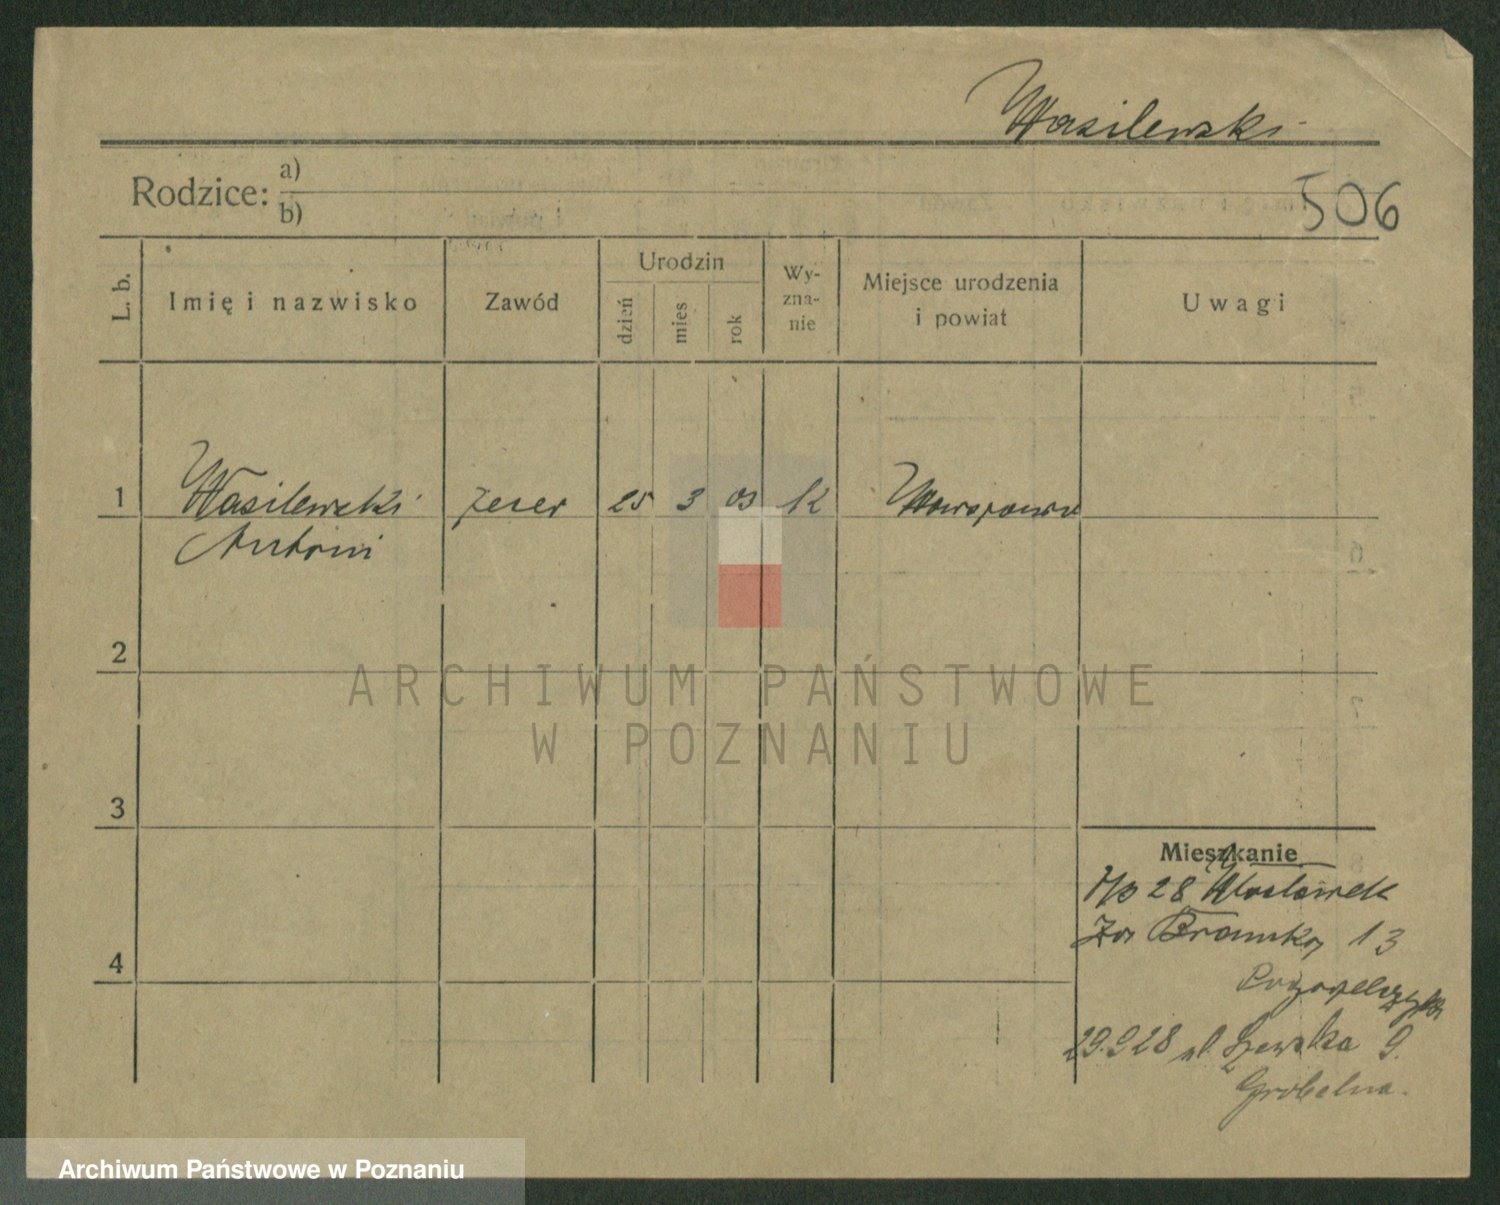 Wasilewski
Rodzice: a)
b)
506
L. b.
Imię i nazwisko
Zawód
Urodzin
dzień
mies
rok
Wy-
zna-
nie
Miejsce urodzenia
i powiat
Uwagi
1
Wasilewski
Antoni
zecer
25
3
03
K
2
ARCHIWUM PAŃSTWOWE
W POZNANIU
3
Mieszkanie
28 Włocławek
Za Bramką 13
4
29.9 28 ul. Szewska 9.
Grobelna.
Archiwum Państwowe w Poznaniu